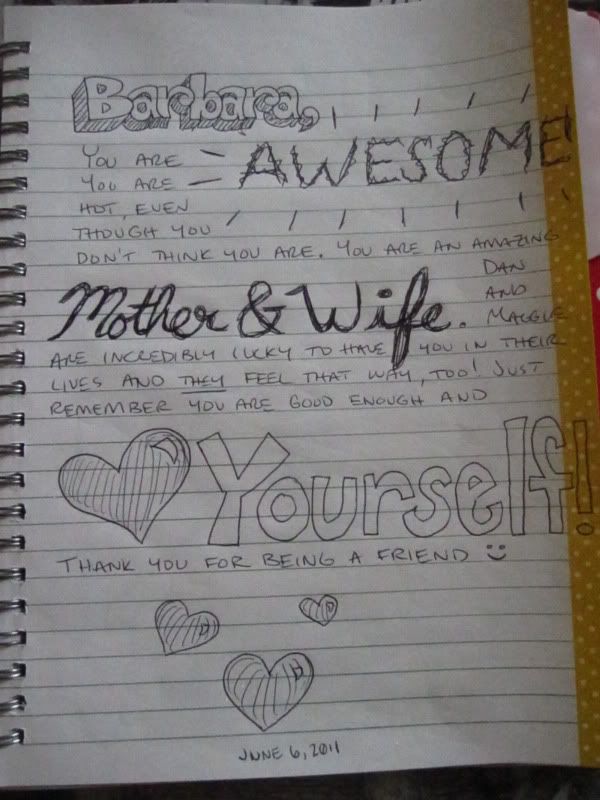 Barbara,
YOU ARE AWESOME
YOU ARE
HOT, EVEN
THOUGH YOU
DON'T THINK YOU ARE. YOU ARE AN AMAZING
Mother & Wife. DAN
AND
MAGGIE
ARE INCREDIBLY LUCKY TO HAVE YOU IN THEIR
LIVES AND THEY FEEL THAT WAY, TOO! JUST
REMEMBER YOU ARE GOOD ENOUGH AND
Yourself!
THANK YOU FOR BEING A FRIEND
JUNE 6, 2011